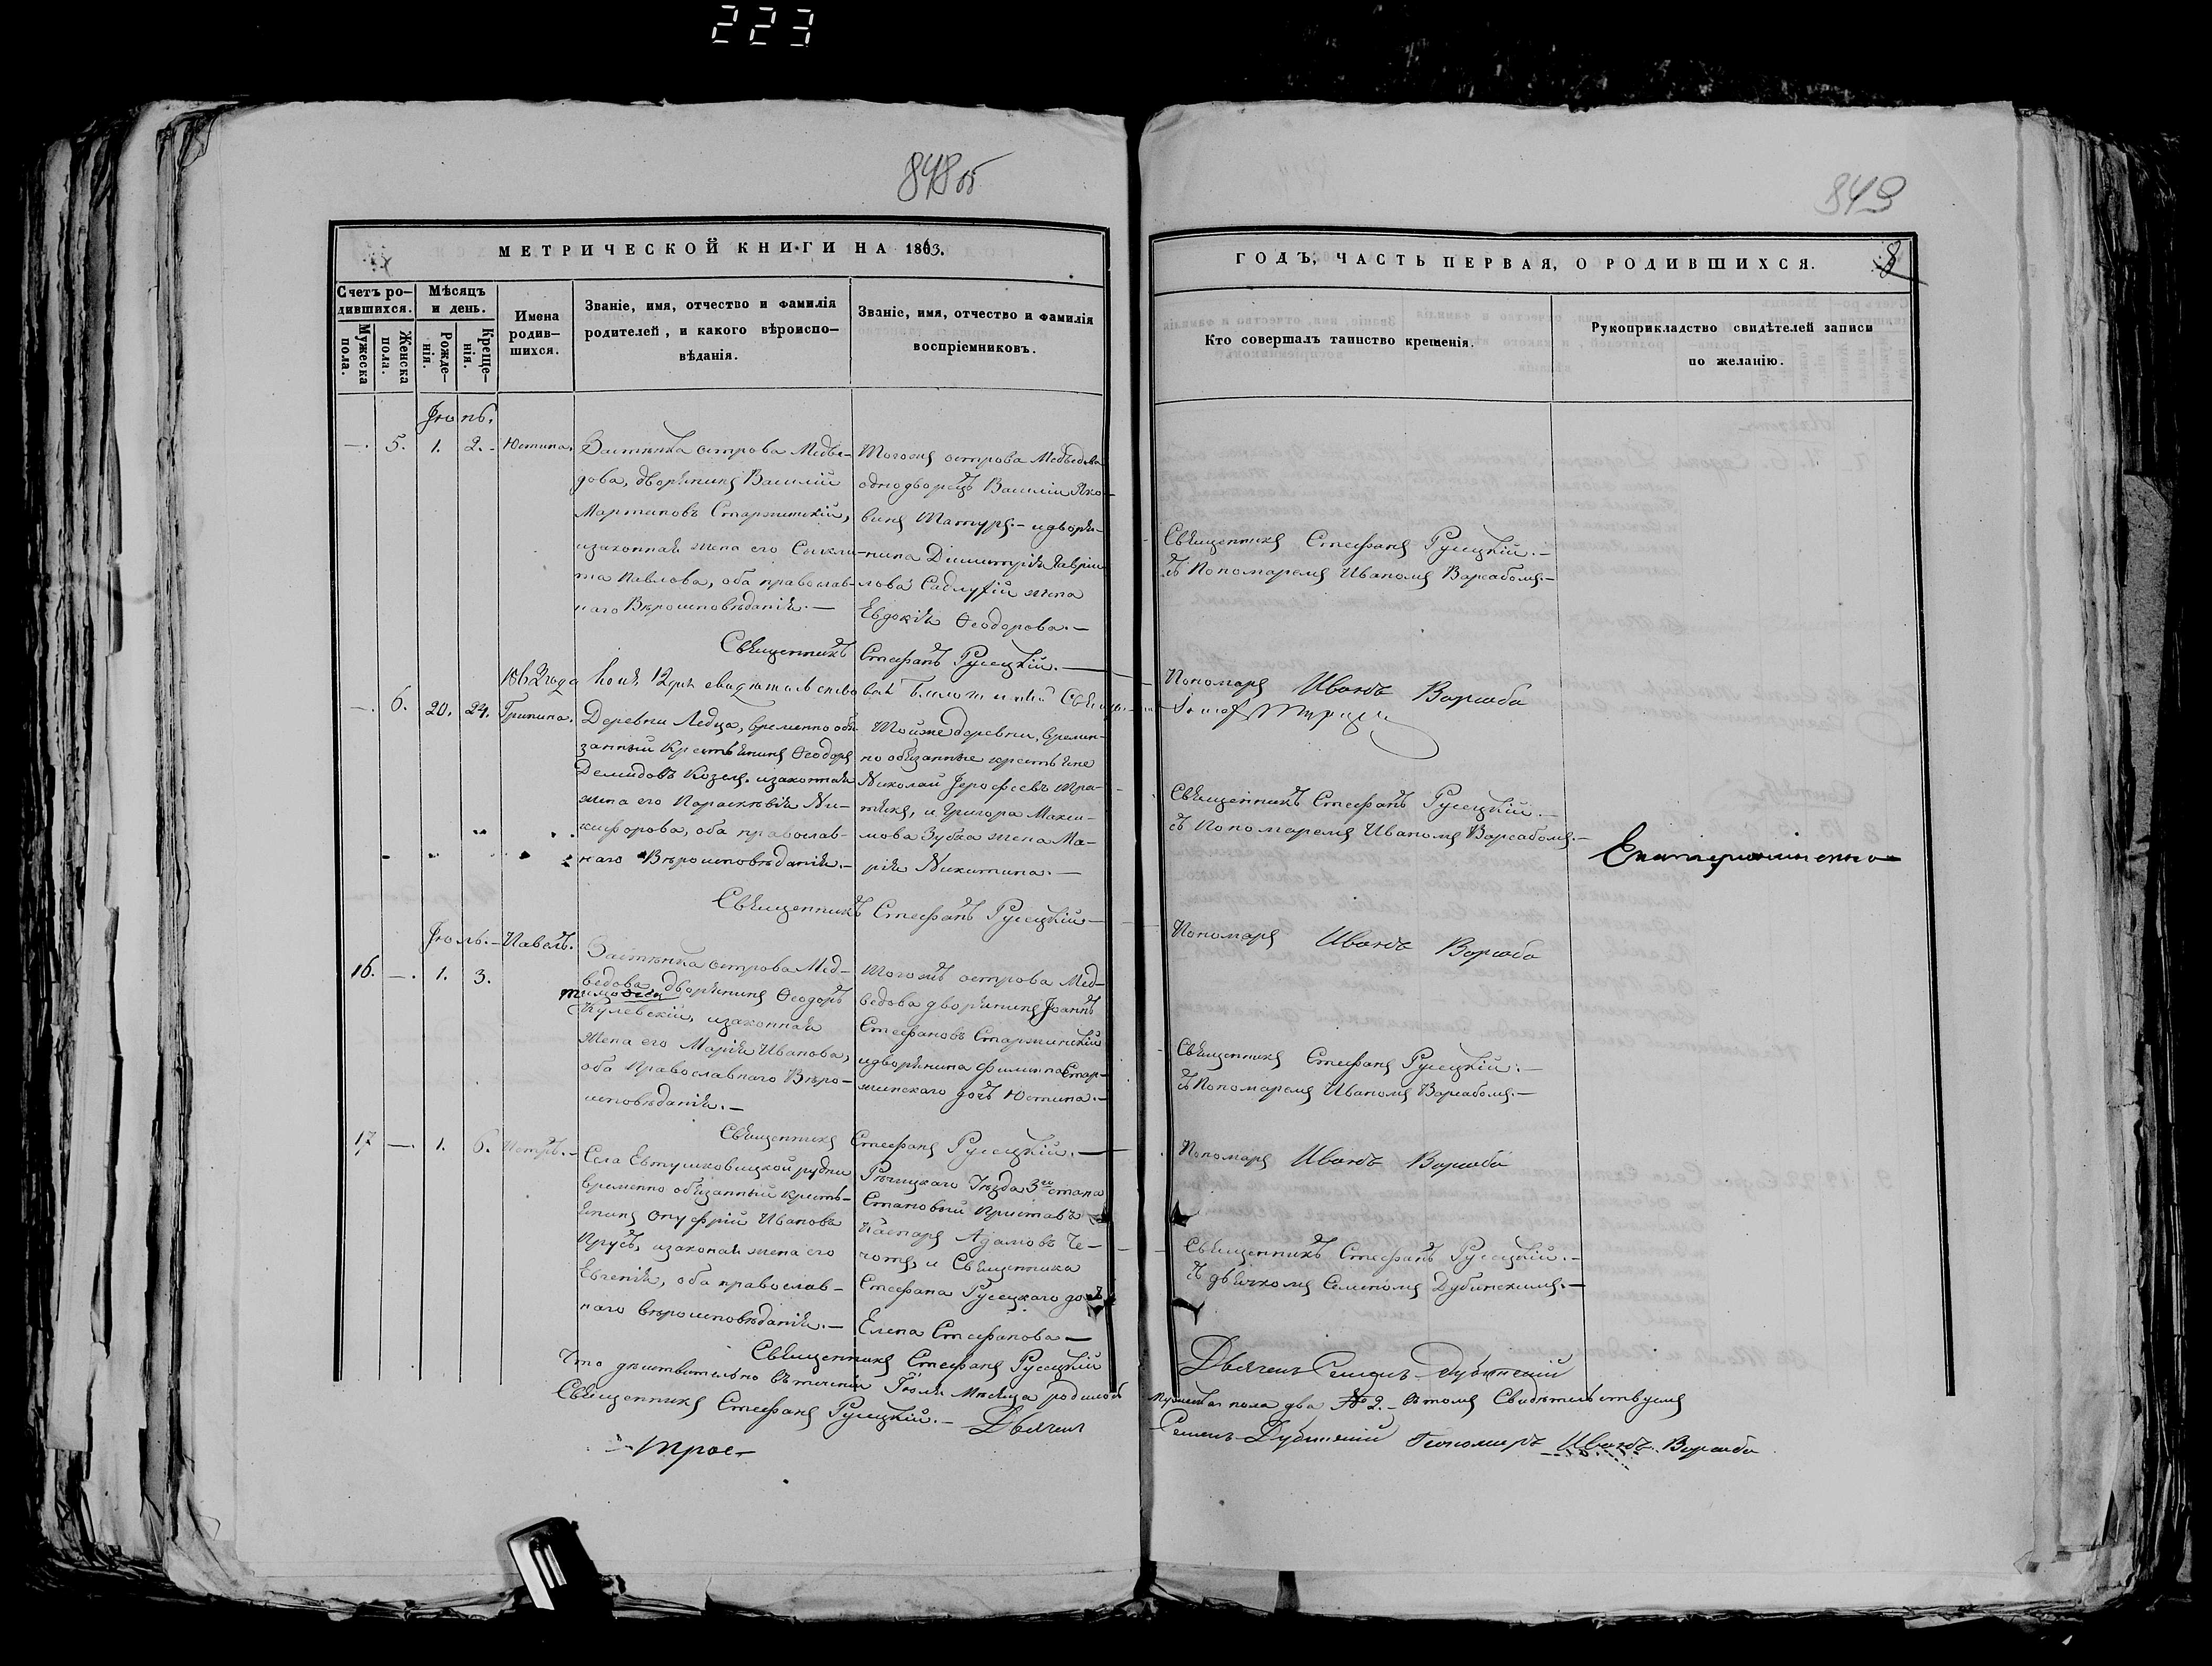 223
848 об
849
МЕТРИЧЕСКОЙ КНИГИ НА 1863.
ГОДЪ, ЧАСТЬ ПЕРВАЯ, О РОДИВШИХСЯ.
8
Счетъ ро-
дившихся.
Мужеска
пола.
Женска
пола.
Мѣсяцъ
и день.
Рожде-
нія.
Креще-
нія.
Имена
родив-
шихся.
Званіе, имя, отчество и фамилія
родителей, и какого вѣроиспо-
вѣданія.
Званіе, имя, отчество и фамилія
воспріемниковъ.
Кто совершалъ таинство крещенія.
Рукоприкладство свидѣтелей записи
по желанію.
Іюнь.
—. 5. 1. 2. Юстина.
Застѣнка острова Медве-
дова, дворянинъ Василій
Мартиновъ Старжинскій,
и законная жена его
Павлова, оба православ-
наго Вѣроисповѣданія.—
Тогожъ острова Медведова
однодворецъ Василій Яко-
и дворя-
нина Димитрія Гаврі-
лова жена
Евдокія Ѳеодорова.—
Священникъ Стефанъ Русецкій.—
съ Пономаремъ Иваномъ Варсабомъ.—
Священникъ Стефанъ Русецкій.—
Пономарь Иванъ Варсаба
1862 года 12 дня
—. 6. 20. 24. Грипина.
Деревни Ледца, временно обя-
занный Крестьянинъ Ѳеодоръ
Демидовъ Козелъ, и законная
жена его Параскевія Ни-
кифорова, оба православ-
наго Вѣроисповѣданія.—
Тойже деревни, времен-
но обязанные крестьяне
Николай Іерофеевъ Тра-
и Григора Макси-
мова Зубка жена Ма-
рія Никитина.—
Священникъ Стефанъ Русецкій.—
съ Пономаремъ Иваномъ Варсабомъ.—
Священникъ Стефанъ Русецкій.—
Пономарь Иванъ Варсаба
Іюль.
16. —. 1. 3. Павелъ.
Застѣнка острова Мед-
ведова дворянинъ Ѳеодоръ
Тимоѳеи
Кулевскій, и законная
жена его Марія Иванова,
оба Православнаго Вѣро-
исповѣданія.—
Тогожъ острова Мед-
ведова дворянинъ Іоаннъ
Стефановъ Старжинскій
и дворянина Филипа Стар-
жинскаго дочь Юстина.—
Священникъ Стефанъ Русецкій.—
съ Пономаремъ Иваномъ Варсабомъ.—
Священникъ Стефанъ Русецкій.—
Пономарь Иванъ Варсаба
17 —. 1. 6. Петръ.
Села Евтушковицкой рудни
временно обязанный кресть-
янинъ Онуфрій Ивановъ
Прусъ, и законая жена его
Евгенія, оба православ-
наго вѣроисповѣданія.—
Рѣчицкаго Уѣзда 3го стана
Становый Приставъ
Каспаръ Адамовъ Че-
чотъ, и Священника
Стефана Русецкаго дочь
Елена Стефанова—
Священникъ Стефанъ Русецкій.—
съ дьячкомъ Семеномъ Дубинскимъ.—
Священникъ Стефанъ Русецкій
Дьячекъ Семенъ Дубинскій
Что дѣйствительно въ теченіи Іюля мѣсяца родилось мужеска пола два № 2.— въ томъ Свидѣтельствуемъ
Священникъ Стефанъ Русецкій.— Дьячекъ Семенъ Дубинскій Пономарь Иванъ Варсаба